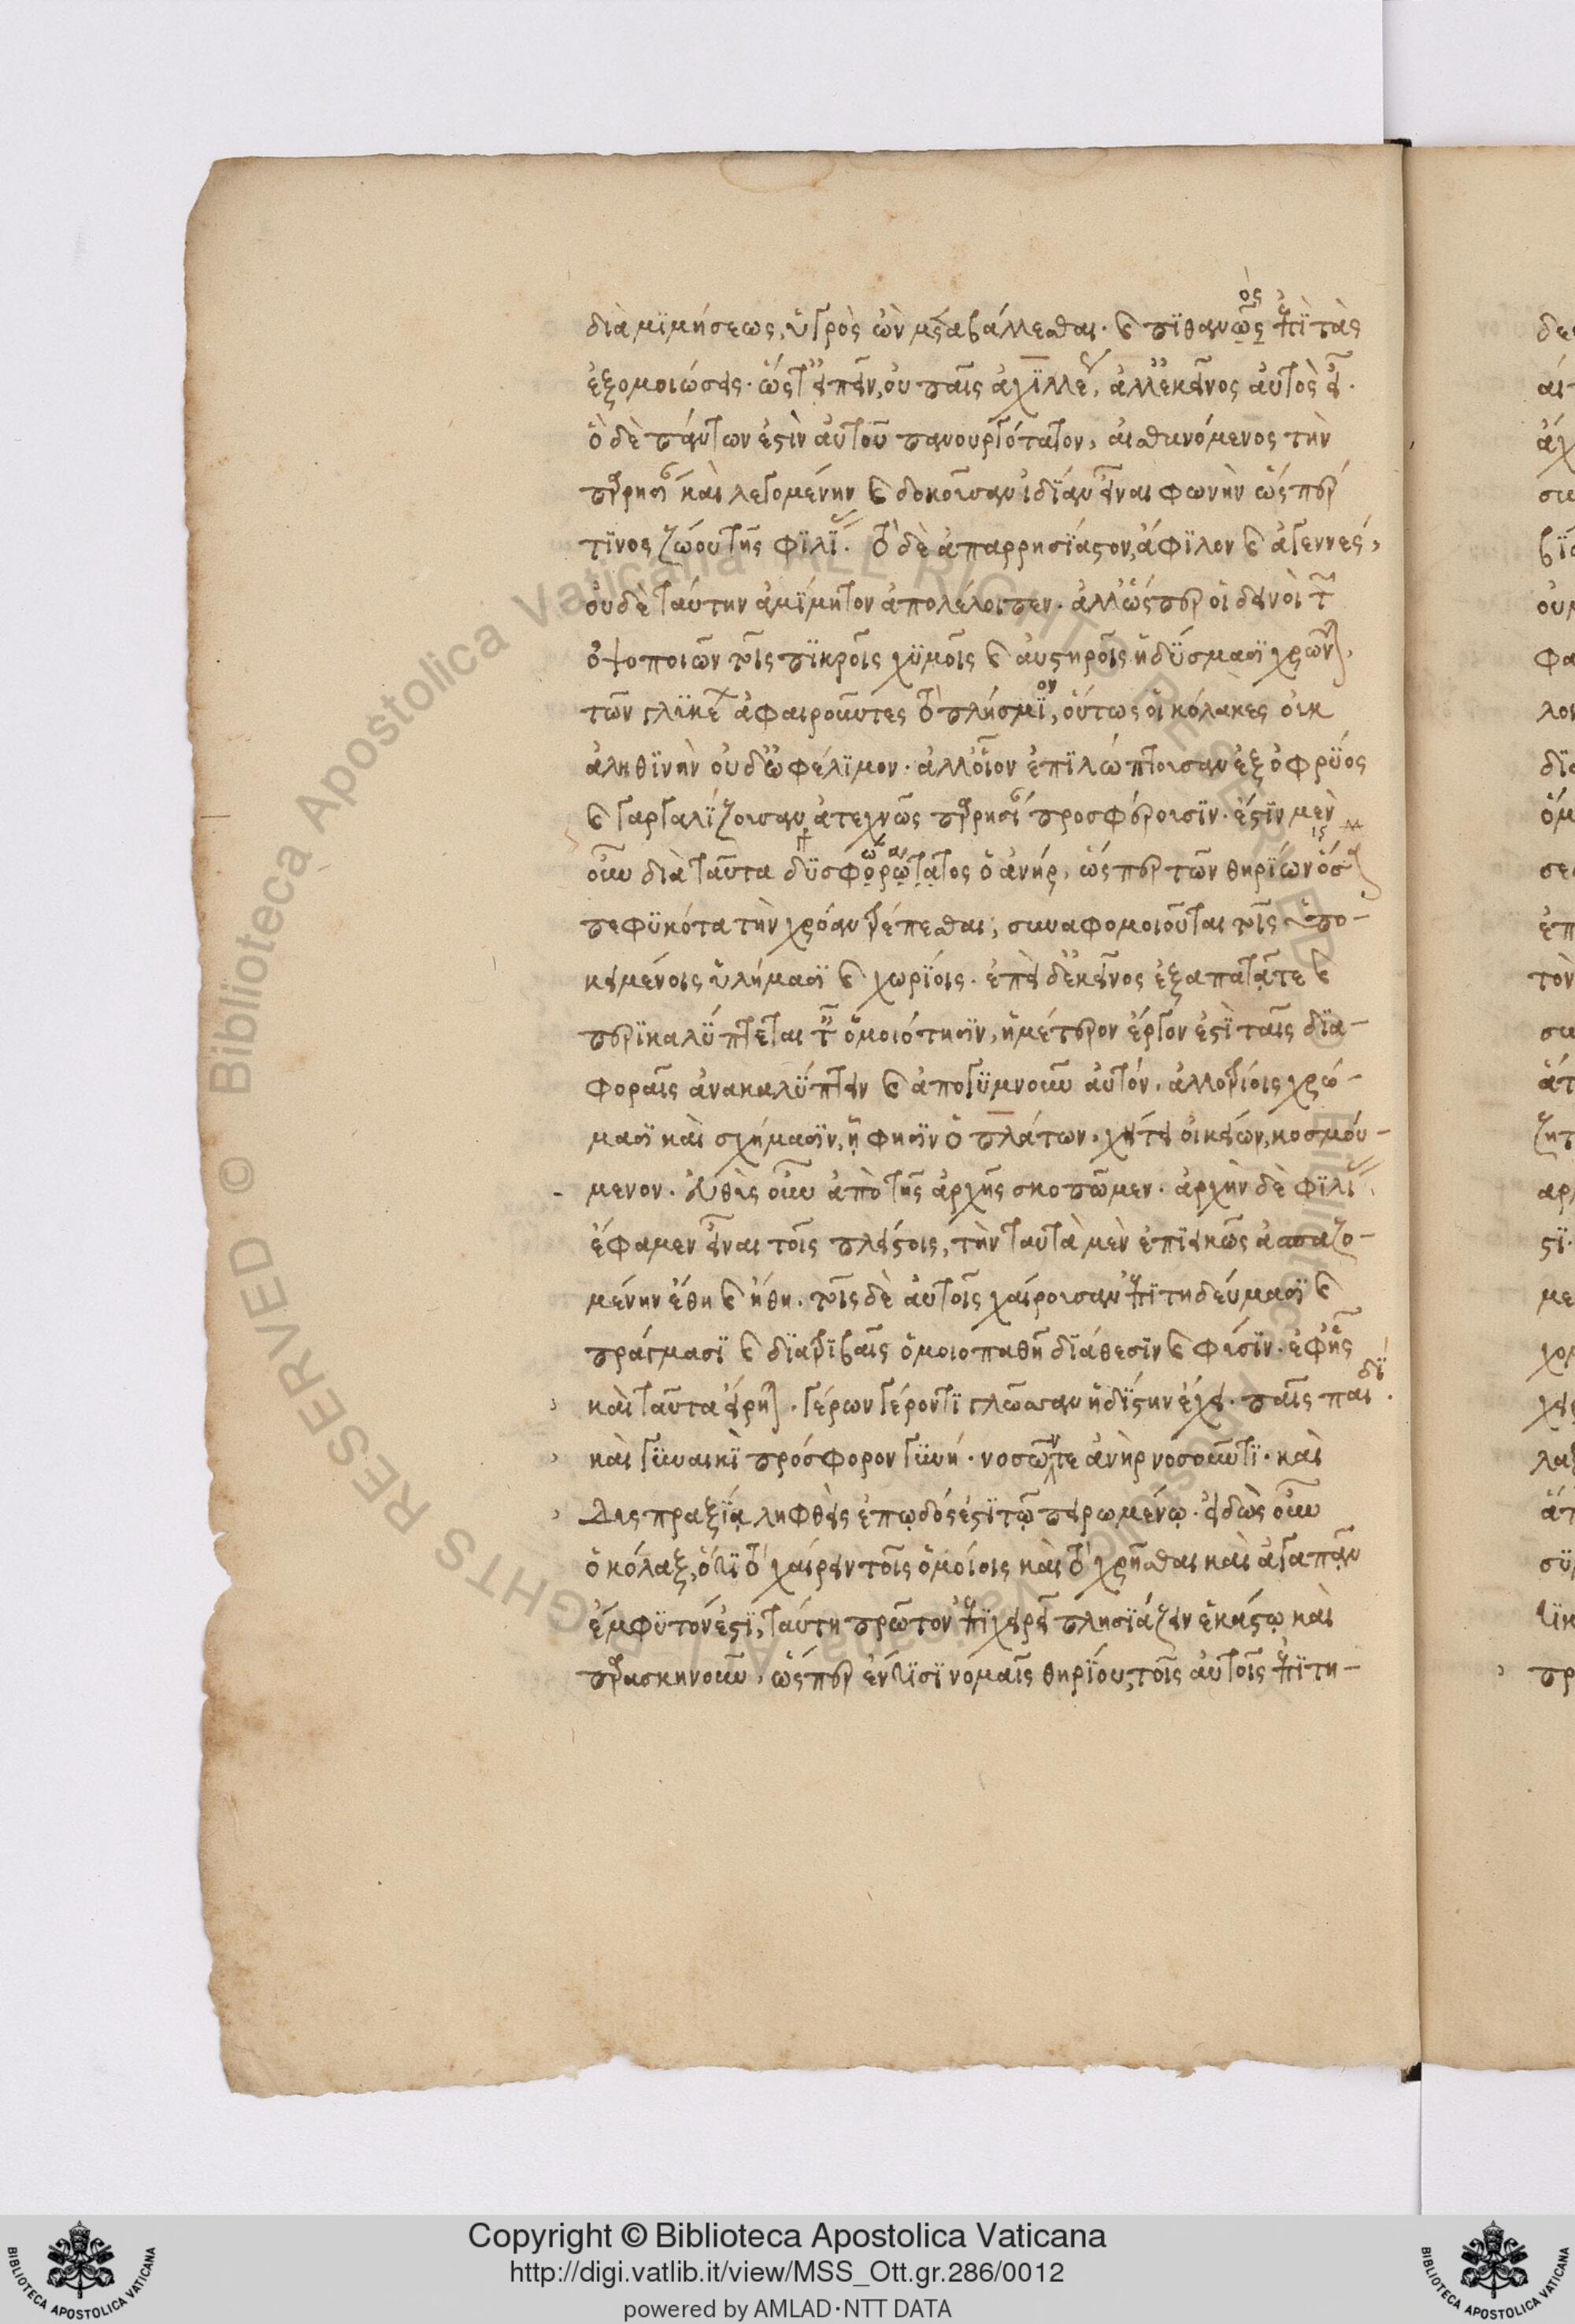 διὰ μιμήσεως, ὑγρὸς ὢν μεταβάλλεσθαι· καὶ πιθανὸς ἐπὶ τὰς
ἐξομοιώσεις· ὥστ' εἰπεῖν, οὐ παῖς ἀχιλλέως, ἀλλ' ἐκεῖνος αὐτὸς εἶ·
ὃ δὲ πάντων ἐστὶν αὐτοῦ πανουργότατον, αἰσθανόμενος τὴν
παρρησίαν καὶ λεγομένην καὶ δοκοῦσαν ἰδίαν εἶναι φωνὴν ὥσπερ
τινος ζώου τῆς φιλίας· τὸ δὲ ἀπαρρησίαστον, ἄφιλον καὶ ἀγεννές,
οὐδὲ ταύτην ἀμίμητον ἀπολέλοιπεν· ἀλλ' ὥσπερ οἱ δεινοὶ τῶν
ὀψοποιῶν τοῖς πικροῖς χυμοῖς καὶ αὐστηροῖς ἡδύσμασι χρῶνται,
τῶν γλυκέων ἀφαιροῦντες τὸ πλήσμιον, οὕτως οἱ κόλακες οὐκ
ἀληθινὴν οὐδ' ὠφέλιμον· ἀλλ' οἷον ἐπιλλώπτουσαν ἐξ ὀφρύος
καὶ γαργαλίζουσαν ἀτεχνῶς παρρησίαν προσφέρουσιν· ἔστιν μὲν
οὖν διὰ ταῦτα δυσφώρατος ὁ ἀνήρ, ὥσπερ τῶν θηρίων ὅσα
πεφυκότα τὴν χρόαν τρέπεσθαι, συναφομοιοῦται τοῖς ὑπο-
κειμένοις ὑλήμασι καὶ χωρίοις· ἐπεὶ δ' ἐκεῖνος ἐξαπατᾷ τε καὶ
περικαλύπτεται ταῖς ὁμοιότησιν, ἡμέτερον ἔργον ἐστὶ ταῖς δια-
φοραῖς ἀνακαλύπτειν καὶ ἀπογυμνοῦν αὐτόν, ἀλλοτρίοις χρώ-
μασι καὶ σχήμασιν, ᾗ φησιν ὁ πλάτων, χήτει οἰκείων, κοσμού-
μενον· εὐθὺς οὖν ἀπὸ τῆς ἀρχῆς σκοπῶμεν· ἀρχὴν δὲ φιλίας
ἔφαμεν εἶναι τοῖς πλείστοις, τὴν ταυτὰ μὲν ἐπιεικῶς ἀσπαζο-
μένην ἔθη καὶ ἤθη· τοῖς δὲ αὐτοῖς χαίρουσαν ἐπιτηδεύμασι καὶ
πράγμασι καὶ διατριβαῖς ὁμοιοπαθῆ διάθεσιν καὶ φύσιν· ἐφ' ἧς
καὶ ταῦτα εἴρηται· γέρων γέροντι γλῶσσαν ἡδίστην ἔχει· παῖς παιδί·
καὶ γυναικὶ πρόσφορον γυνή· νοσῶν τε ἀνὴρ νοσοῦντι· καὶ
δυσπραξίᾳ ληφθεὶς ἐπῳδός ἐστι τῷ πειρωμένῳ· εἰδὼς οὖν
ὁ κόλαξ, ὅτι τὸ χαίρειν τοῖς ὁμοίοις καὶ τὸ χρῆσθαι καὶ ἀγαπᾶν
ἔμφυτόν ἐστι, ταύτῃ πρῶτον ἐπιχειρεῖ πλησιάζειν ἑκάστῳ καὶ
παρασκηνοῦν, ὥσπερ ἔν τισι νομαῖς θηρίου, τοῖς αὐτοῖς ἐπιτη-
Copyright © Biblioteca Apostolica Vaticana
http://digi.vatlib.it/view/MSS_Ott.gr.286/0012
powered by AMLAD·NTT DATA